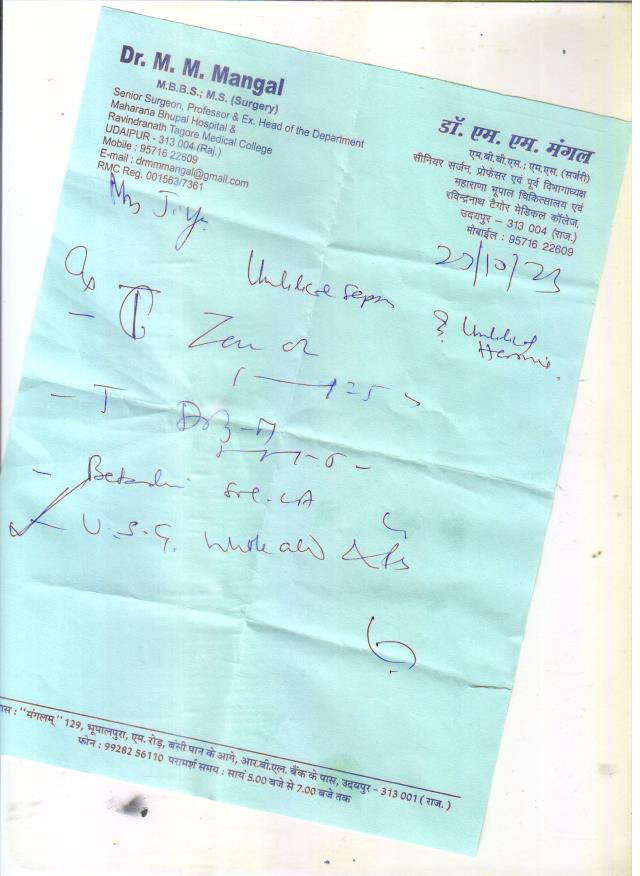 Dr. M. M. Mangal
M.B.B.S.; M.S. (Surgery)
Senior Surgeon, Professor & Ex. Head of the Department
Maharana Bhupal Hospital &
Ravindranath Tagore Medical College
UDAIPUR - 313 004 (Raj.)
Mobile : 95716 22609
E-mail : drmmmangal@gmail.com
RMC Reg. 001563/7361
डॉ. एम. एम. मंगल
एम.बी.बी.एस.; एम.एस. (सर्जरी)
सीनियर सर्जन, प्रोफेसर एवं पूर्व विभागाध्यक्ष
महाराणा भूपाल चिकित्सालय एवं
रविन्द्रनाथ टैगोर मेडिकल कॉलेज,
उदयपुर – 313 004 (राज.)
मोबाईल : 95716 22609
/10/23
Umbilical
? Umbilical
Hernia
- T
- Betadine
- U.S.G. whole abd
"मंगलम्" 129, भूपालपुरा, एम. रोड़, बंसी पान के आगे, आर.बी.एल. बैंक के पास, उदयपुर – 313 001 ( राज. )
फोन : 99282 56110 परामर्श समय : सायं 5.00 बजे से 7.00 बजे तक